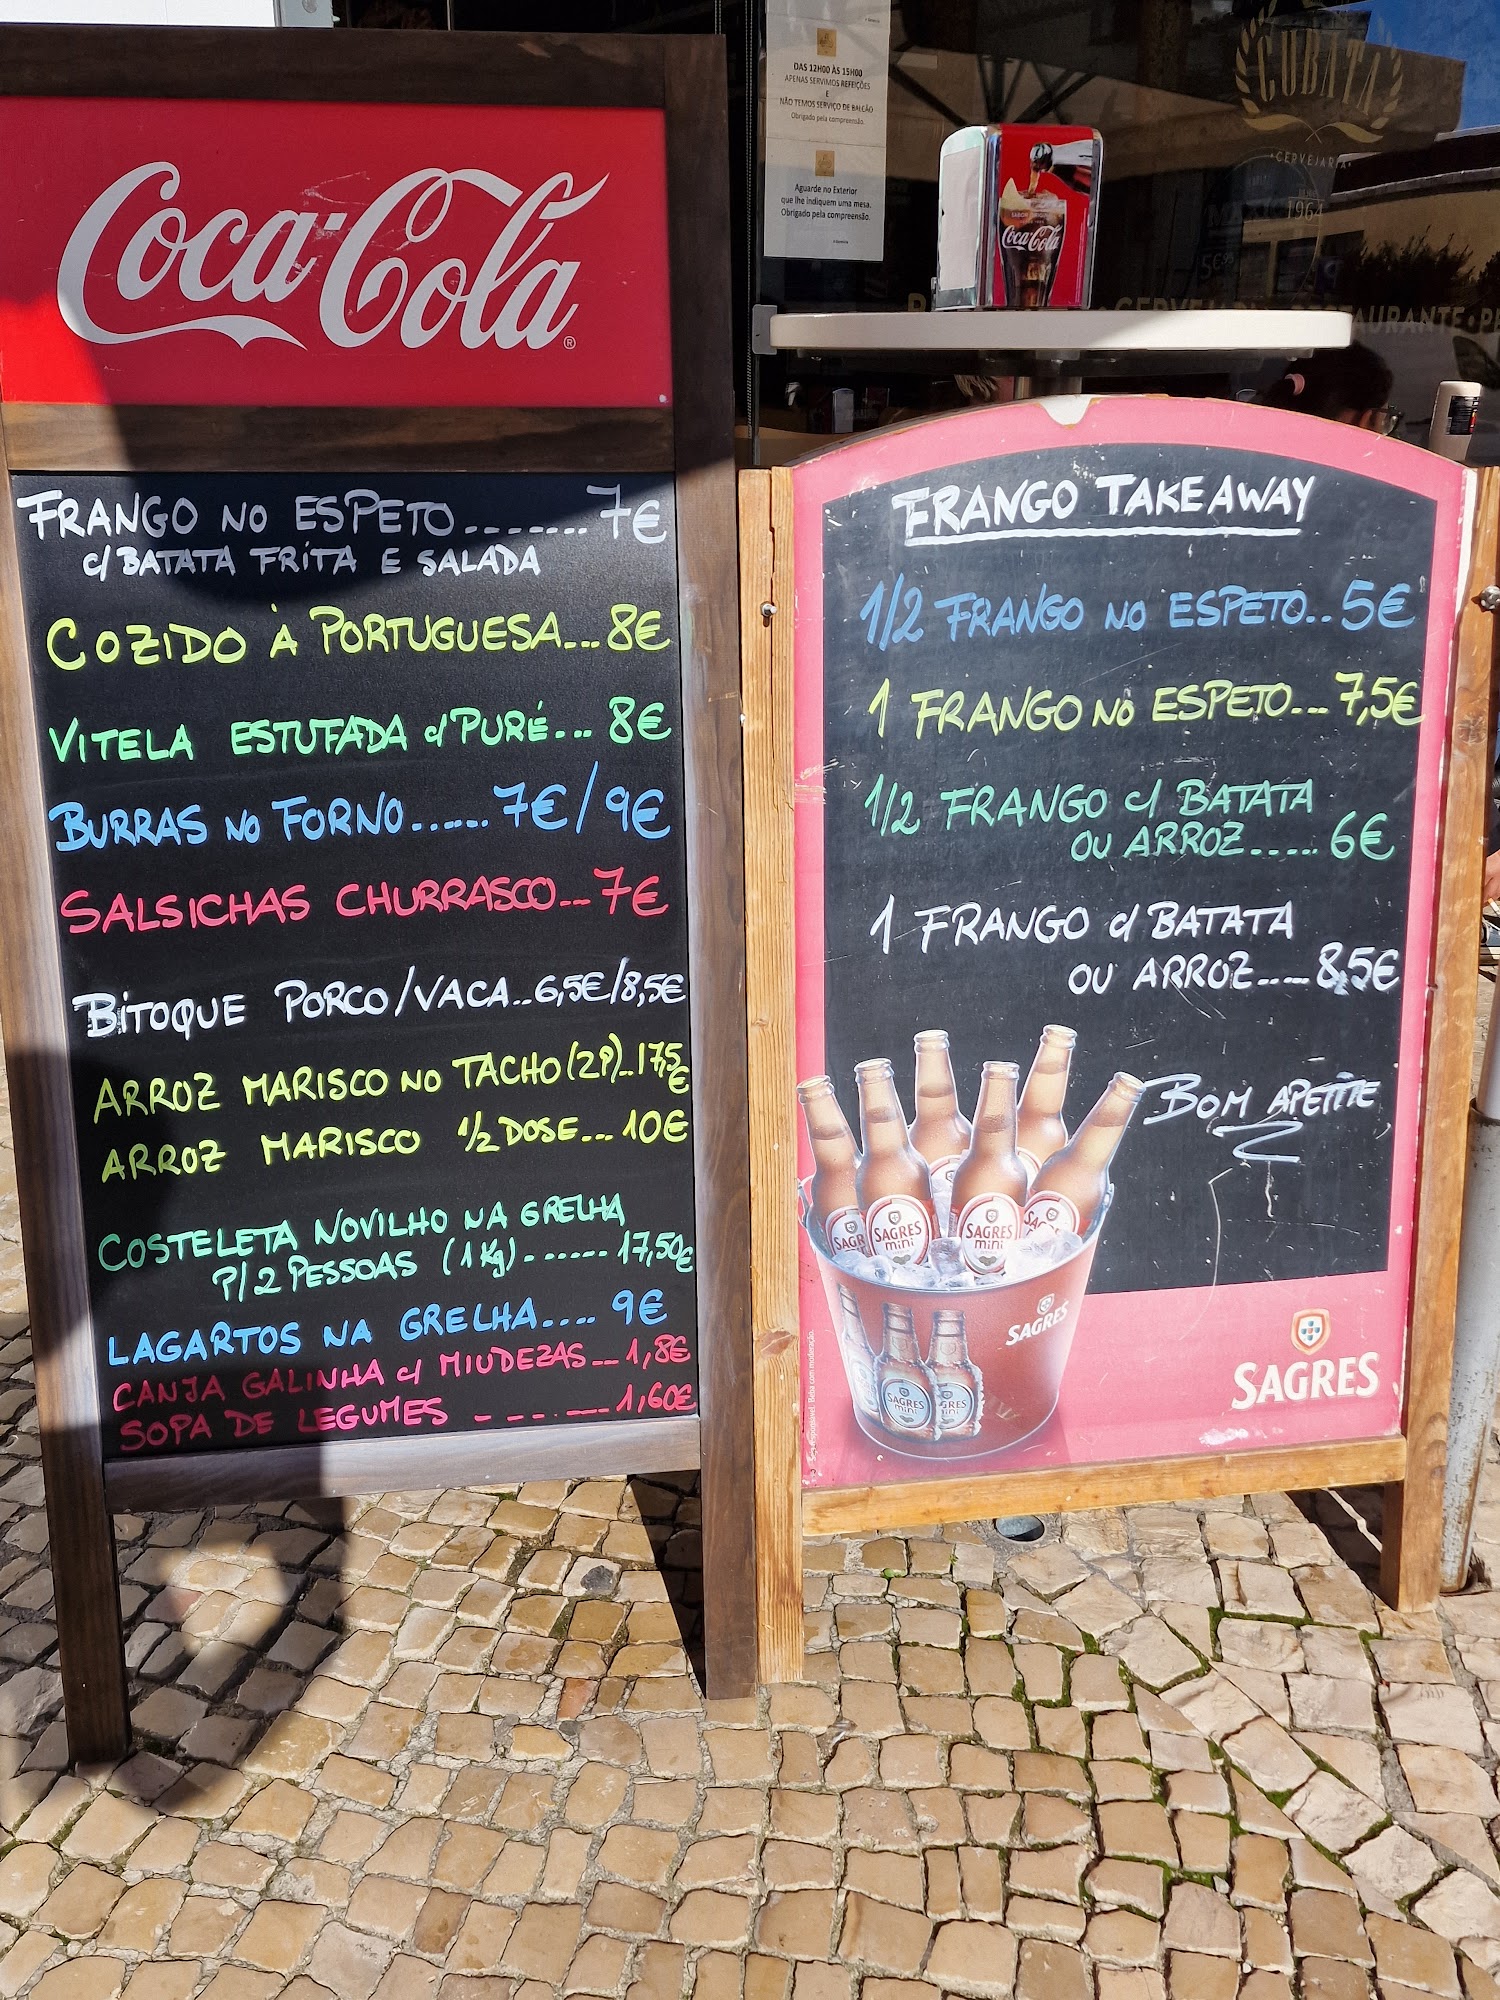 Coca-Cola
FRANGO NO ESPETO....... 7€
c/ BATATA FRITA E SALADA
COZIDO À PORTUGUESA... 8€
VITELA ESTUFADA c/ PURÉ... 8€
BURRAS NO FORNO...... 7€/9€
SALSICHAS CHURRASCO... 7€
BITOQUE PORCO/VACA.. 6,5€/8,5€
ARROZ MARISCO NO TACHO (2P).. 17,5€
ARROZ MARISCO 1/2 DOSE... 10€
COSTELETA NOVILHO NA GRELHA
P/ 2 PESSOAS (1 Kg)....... 17,50€
LAGARTOS NA GRELHA.... 9€
CANJA GALINHA c/ MIUDEZAS... 1,8€
SOPA DE LEGUMES ....... 1,60€
DAS 12H00 ÀS 15H00
APENAS SERVIMOS REFEIÇÕES
E
NÃO TEMOS SERVIÇO DE BALCÃO
Obrigado pela compreensão.
Aguarde no Exterior
que lhe indiquem uma mesa.
Obrigado pela compreensão.
Coca-Cola
CUBATA
CERVEJARIA
1964
FRANGO TAKEAWAY
1/2 FRANGO NO ESPETO.. 5€
1 FRANGO NO ESPETO... 7,5€
1/2 FRANGO c/ BATATA
OU ARROZ...... 6€
1 FRANGO c/ BATATA
OU ARROZ..... 8,5€
BOM APETITE
SAGRES
mini
SAGRES
mini
SAGRES
SAGRES
mini
SAGRES
mini
SAGRES